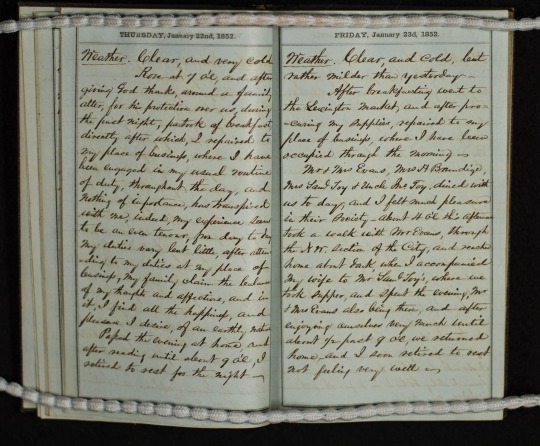 THURSDAY, January 22nd, 1852.
Weather. Clear, and very cold
Rose at 7 OC, and after
giving God thanks, around a family
alter, for his protection over us, during
the past night, partook of breakfast
directly after which, I repaired to
my place of business, where I have
been engaged in my usual routine
of duty, throughout the day, and
nothing of importance, has transpired
with me, indeed, my experience seems
to be an even tenour, from day to day
my duties vary but little, after atten-
-ding to my duties at my place of
business, my family claim the balance
of my thoughts and affections, and in
it, I find all the happiness, and
pleasure I desire, of an earthly nature
Passed the evening at home and
after reading until about 9 OC, I
retired to rest for the night
FRIDAY, January 23d, 1852.
Weather. Clear, and cold, but
rather milder than yesterday
After breakfasting went to
the Lexington Market, and after pro-
-curing my supplies, repaired to my
place of business, where I have been
occupied through the morning
Mr & Mrs Evans, Mrs A
Mrs Saml Toy & Uncle Jno Toy, dined with
us to day, and I felt much pleasure
in their Society - about 4 OC this afternoon
took a walk with Mr Evans, through
the N.W. Section of the City, and reached
home about dark, when I accompanied
my wife to Mr Saml Toy's, where we
took supper, and spent the evening, Mr
& Mrs Evans also being there, and after
enjoying ourselves very much until
about ½ past 9 OC, we returned
home, and I soon retired to rest
not feeling very well